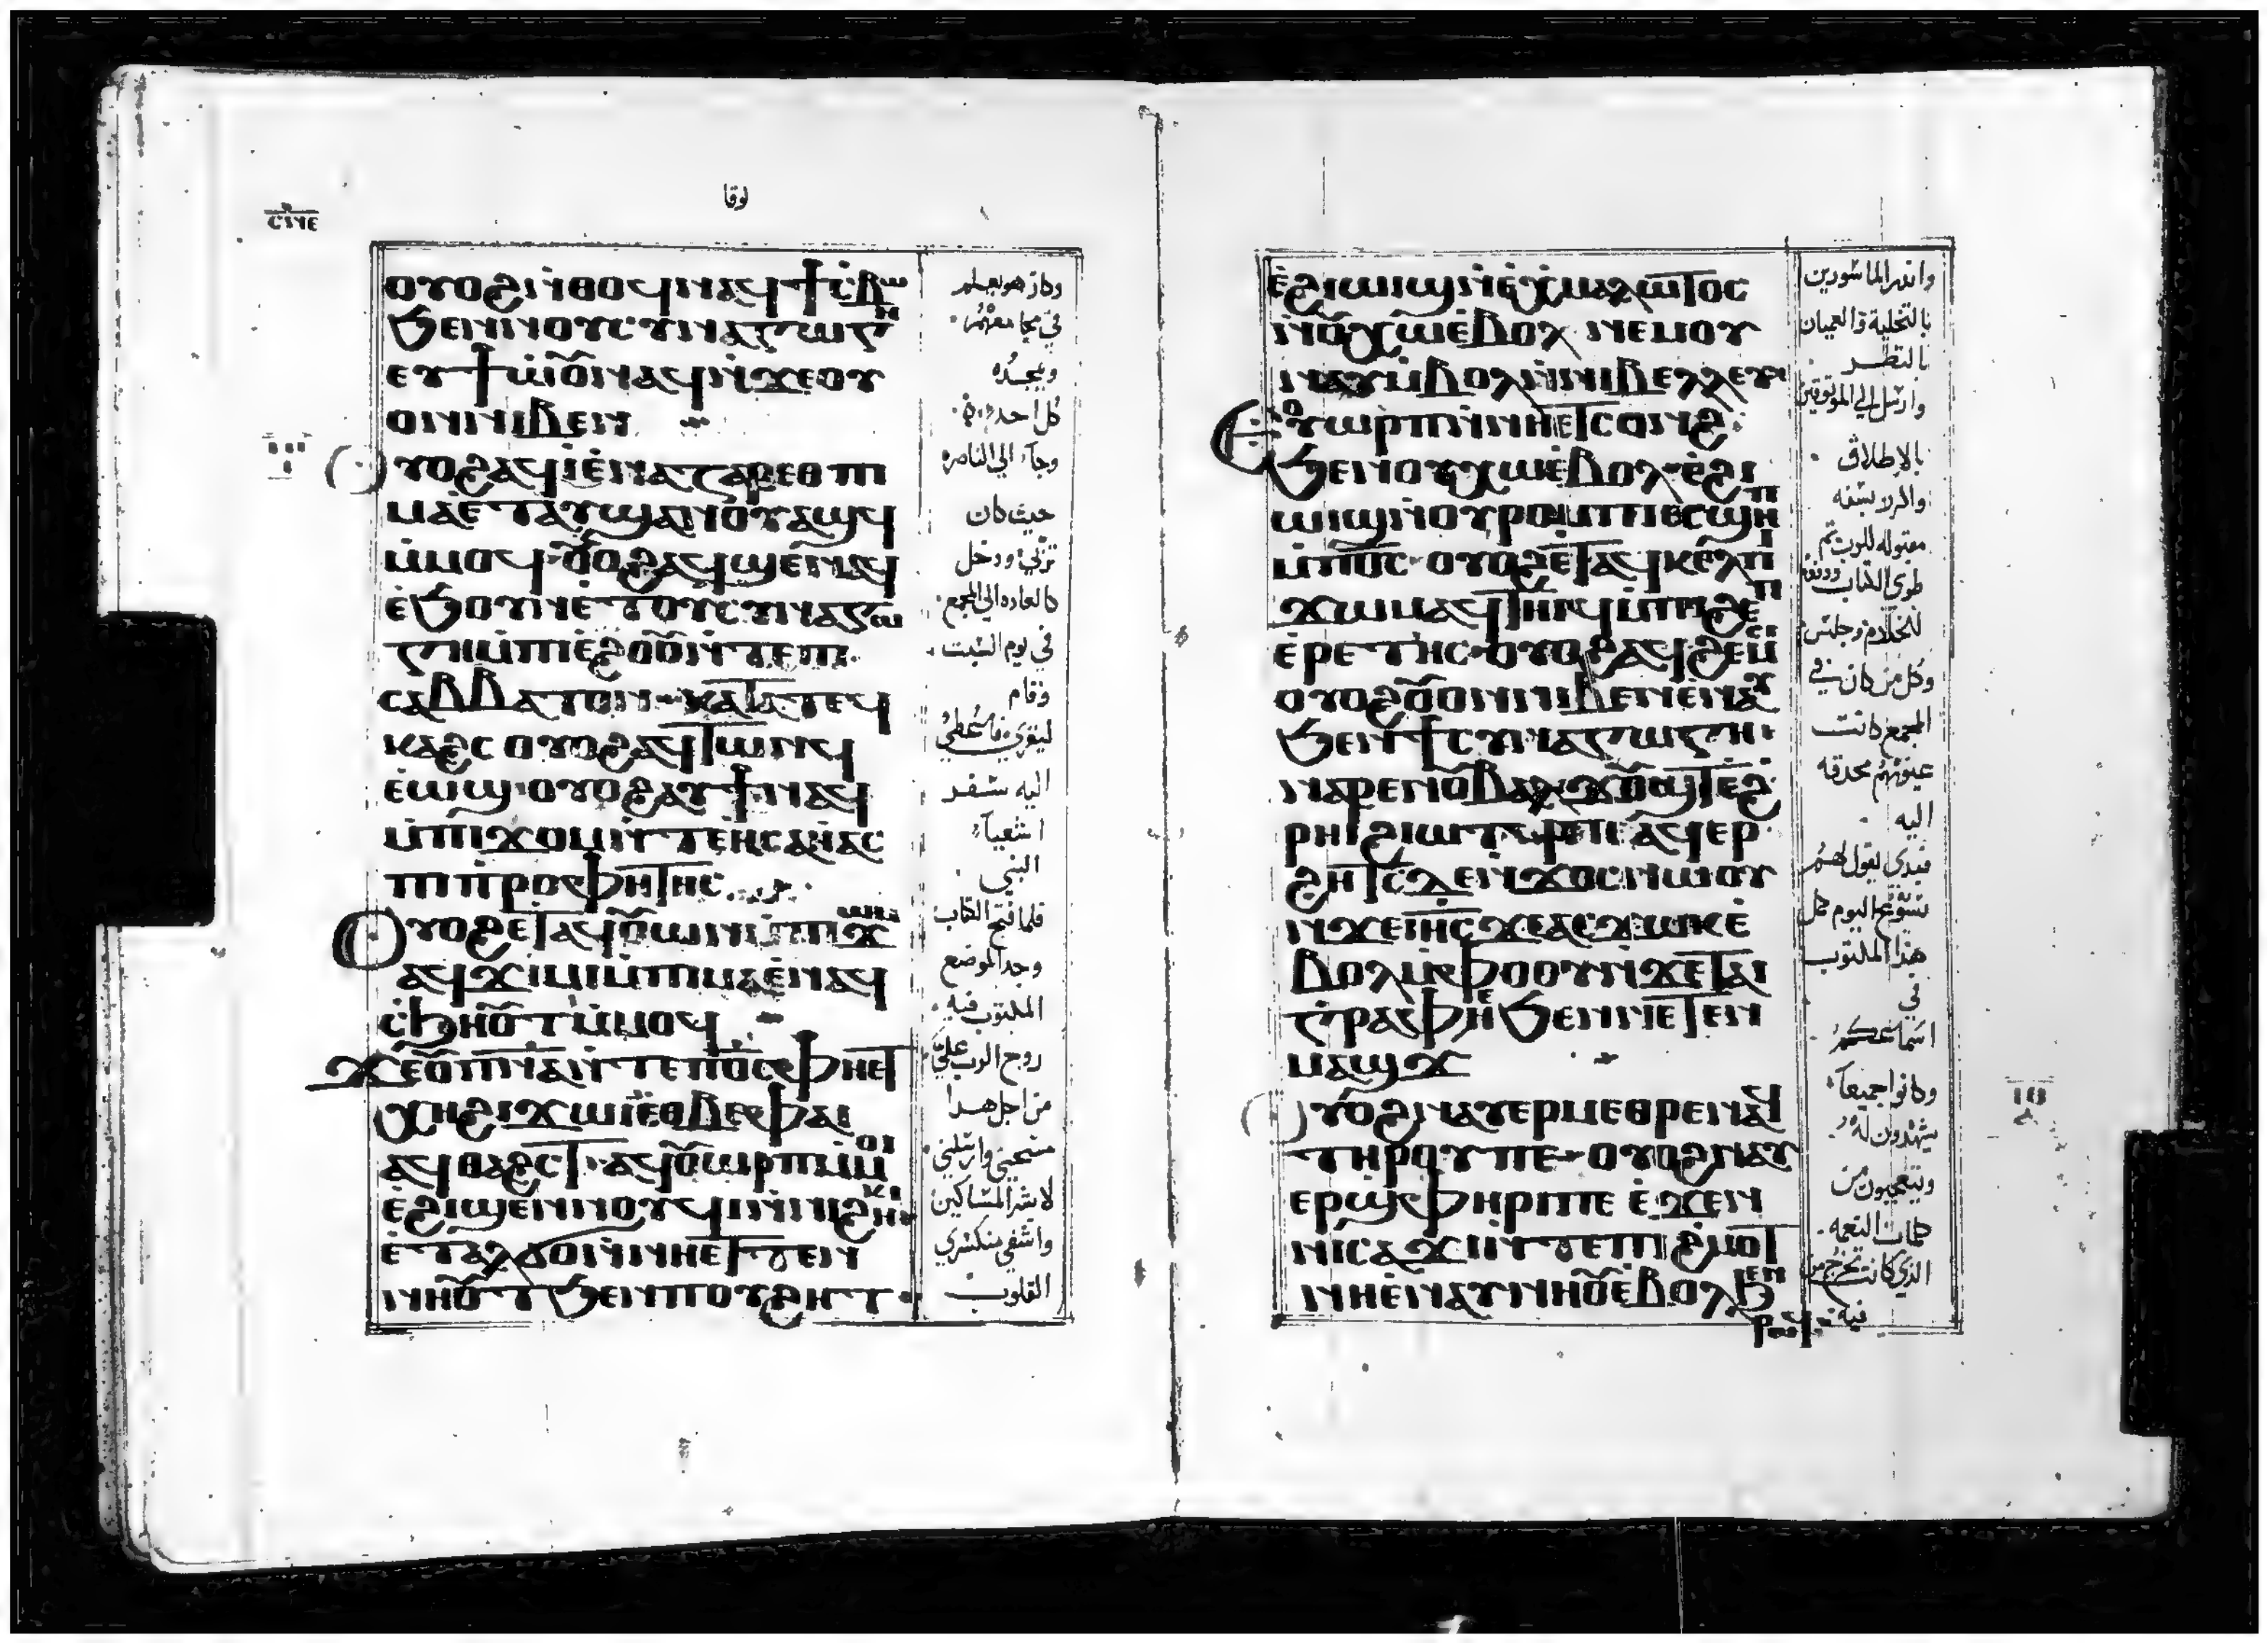 لوقا
ⲥⲛⲉ
ⲟⲩⲟϩ ⲛ̇ⲑⲟϥ ⲛⲁϥϯⲥ̇ⲃⲱ
ϧⲉⲛ ⲛⲟⲩⲥⲩⲛⲁⲅⲱⲅⲏ
ⲉⲩϯⲱ̇ⲟⲩ ⲛⲁϥ ⲛ̇ϫⲉ ⲟⲩ
ⲟⲛ ⲛⲓⲃⲉⲛ
ⲟⲩⲟϩ ⲁϥⲓ̇ ⲉ̇ⲛⲁⲍⲁⲣⲉⲑ ⲡⲓ
ⲙⲁ ⲉ̇ⲧⲁⲩϣⲁⲛⲟⲩϣϥ
ⲙ̇ⲙⲟϥ ⲟⲩⲟϩ ⲁϥϣⲉ ⲛⲁϥ
ⲉ̇ϧⲟⲩⲛ ⲉ̇ⲧⲟⲩⲥⲩⲛⲁⲅⲱ
ⲅⲏ ⲙ̇ⲡⲓⲉ̇ϩⲟⲟⲩ ⲛ̇ⲧⲉ ⲡⲓ
ⲥⲁⲃⲃⲁⲧⲟⲛ ⲕⲁⲧⲁ ⲧⲉϥ
ⲕⲁϩⲥ ⲟⲩⲟϩ ⲁϥⲧⲱⲛϥ
ⲉ̇ⲱϣ ⲟⲩⲟϩ ⲁⲩϯ ⲛⲁϥ
ⲙ̇ⲡⲓϫⲱⲙ ⲛ̇ⲧⲉ ⲏⲥⲁⲏ̇ⲁⲥ
ⲡⲓⲡⲣⲟⲫⲏⲧⲏⲥ
ⲟⲩⲟϩ ⲉⲧⲁϥⲟⲩⲱⲛ ⲙ̇ⲡⲓϫⲱⲙ
ⲁϥϫⲓⲙⲓ ⲙ̇ⲡⲓⲙⲁ ⲉ̇ⲛⲁϥ
ⲥ̇ϧⲏⲟⲩⲧ ⲙ̇ⲙⲟϥ
ϫⲉ ⲟⲩⲡ̅ⲛ̅ⲁ̅ ⲛ̇ⲧⲉ ⲡ̅ⲟ̅ⲥ̅ ⲫⲏⲉⲧ
ⲭⲏ ϩⲓϫⲱⲓ ⲉⲑⲃⲉ ⲫⲁⲓ
ⲁϥⲑⲁϩⲥⲧ ⲁϥⲟⲩⲟⲣⲡⲧ ⲙ̇ⲙⲟⲓ
ⲉ̇ϩⲓϣⲉⲛⲛⲟⲩϥⲓ ⲛ̇ⲛⲓϩⲏⲕⲓ
ⲉ̇ⲧⲁⲗϭⲟ ⲛ̇ⲛⲏⲉⲧⲧⲉⲛ
ⲛⲏⲟⲩⲧ ϧⲉⲛ ⲡⲟⲩϩⲏⲧ
وكان هو يعلم
في مجامعهم
ويمجده
كل احد
وجاء الي الناصره
حيث كان
تربي ودخل
كالعاده الي المجمع
في يوم السبت
وقام
ليقري فاعطي
اليه سفر
اشعياء
النبي
فلما فتح الكتاب
وجد الموضع
المكتوب فيه
روح الرب علي
من اجل هدا
مسحني وارسلني
لابشر المساكين
واشفي منكسري
القلوب
ⲉ̇ϩⲓⲱⲓϣ ⲛ̇ⲉ̇ⲭⲙⲁⲗⲱⲧⲟⲥ
ⲛ̇ⲟⲩⲭⲱ ⲉ̇ⲃⲟⲗ ⲛⲉⲙ ⲟⲩ
ⲛⲁⲩ ⲙ̇ⲃⲟⲗ ⲛ̇ⲛⲓⲃⲉⲗⲗⲉⲩ
ⲉ̇ⲟⲩⲱⲣⲡ ⲛ̇ⲛⲏⲉⲧⲥⲟⲛϩ
ϧⲉⲛ ⲟⲩⲭⲱ ⲉ̇ⲃⲟⲗ ⲉ̇ϩⲓ
ⲱⲓϣ ⲛ̇ⲟⲩⲣⲟⲙⲡⲓ ⲉⲥϣⲏⲡ
ⲙ̇ⲡ̅ⲟ̅ⲥ̅ ⲟⲩⲟϩ ⲉ̇ⲧⲁϥⲕⲉⲗ ⲡⲓ
ϫⲱⲙ ⲁϥⲧⲏⲓϥ ⲙ̇ⲡⲓϩⲩⲡ
ⲉ̇ⲣⲉⲧⲏⲥ ⲟⲩⲟϩ ⲁϥϩⲉⲙⲥⲓ
ⲟⲩⲟϩ ⲟⲩⲟⲛ ⲛⲓⲃⲉⲛ ⲉ̇ⲛⲁⲩ
ϧⲉⲛ ϯⲥⲩⲛⲁⲅⲱⲅⲏ
ⲛⲁⲣⲉ ⲛⲟⲩⲃⲁⲗ ϫⲟⲩϣⲧ ⲉ̇ϩ
ⲣⲏⲓ ϩⲓⲱⲧϥ ⲡⲉ ⲁϥⲉⲣ
ϩⲏⲧⲥ ⲇⲉ ⲛ̇ϫⲟⲥ ⲛⲱⲟⲩ
ⲛ̇ϫⲉ ⲓ̅ⲏ̅ⲥ̅ ϫⲉ ⲁⲥϫⲱⲕ ⲉ̇
ⲃⲟⲗ ⲙ̇ⲫⲟⲟⲩ ⲛ̇ϫⲉ ⲧⲁⲓ
ⲅⲣⲁⲫⲏ ϧⲉⲛ ⲛⲉⲧⲉⲛ
ⲙⲁϣϫ
ⲟⲩⲟϩ ⲛⲁⲩⲉⲣⲙⲉⲑⲣⲉ ⲛⲁϥ
ⲧⲏⲣⲟⲩ ⲡⲉ ⲟⲩⲟϩ ⲛⲁⲩ
ⲉⲣϣⲫⲏⲣⲓ ⲡⲉ ⲉ̇ϫⲉⲛ
ⲛⲓⲥⲁϫⲓ ⲛ̇ⲧⲉ ⲡⲓϩ̇ⲙⲟⲧ
ⲛⲏⲉ̇ⲛⲁⲩⲛⲏⲟⲩ ⲉ̇ⲃⲟⲗ ϧⲉⲛ
ⲣⲱϥ
وانذر الماسورين
بالتخلية والعميان
بالنظر
وارسل الي الموثوقين
بالاطلاق
مقبوله للرب ثم
طوي الكتاب ودفعه
للخادم وجلس
وكل من كان في
المجمع كانت
عيونهم محدقه
اليه
فبدي يقول لهم
اليوم كمل
هذا المكتوب
في
اسماعكم
وكانوا جميعاً
يشهدون له
ويتعجبون من
كلمات النعمه
الذي كانت تخرج من
فيه